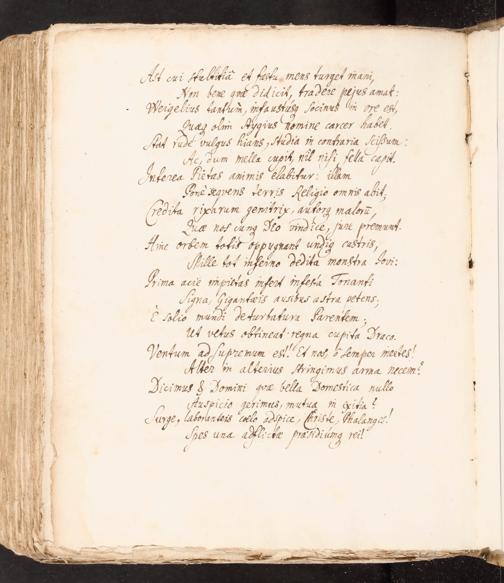 Ast cui stultitiâ et fastu mens turget inani,
Non bene quæ didicit, tradere pejus amat:
Weigelius tantum, infaustusq Socinus in ore est,
Quæq olim Stygius nomine carcer habet.
Stat rude vulgus hians, studia in contraria scissum:
Ac, dum mella cupit, nil nisi fella capit.
Interea Pietas animis elabitur: illam
Ponè seqvens terris Religio omnis abit,
Credita rixarum genitrix, autorq malorū,
Quæ nos cunq Deo vindice, jure premunt.
Hinc orbem totis oppugnant undiq castris,
Mille tot inferno dedita monstra Jovi:
Prima acie impietas infert infesta Tonanti
Signa, Gigantæis ausibus astra petens;
È solio mundi deturbatura Parentem;
Ut vetus obtineat regna cupita Draco.
Ventum ad Supremum est!! Et nos, ô semper inertes!
Alter in alterius stringimus arma necem?
Dicimus & Domini quæ bella Domestica nullo
Auspicio gerimus, mutua in exitia?
Surge, laborantes coelo adspice, Christe, Phalanges!
Spes una adflictæ præsidiumq rei!